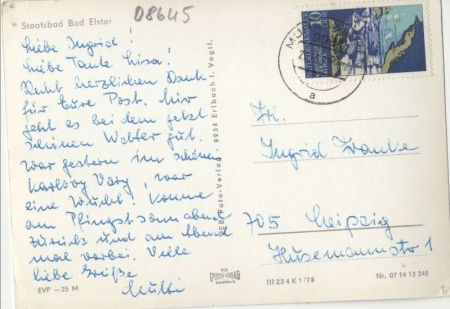 08645
Staatsbad Bad Elster
Liebe Ingrid!
Liebe Tante Lisa!
Recht herzlichen Dank
für Eure Post. Mir
geht es bei dem jetzt
schönen Wetter gut.
War gestern im schönen
Karlovy Vary, war
eine Wucht! Komme
am Pfingstsonnabend
zurück und am Abend
mal vorbei. Viele
liebe Grüße
Mutti
EVP –.25 M
Foto-Verlag · 9934 Erlbach i. Vogtl.
10
a
Fr.
Ingrid
705 Leipzig
Husemannstr 1
III 23 4 K 1/78
Nr. 07 14 13 248